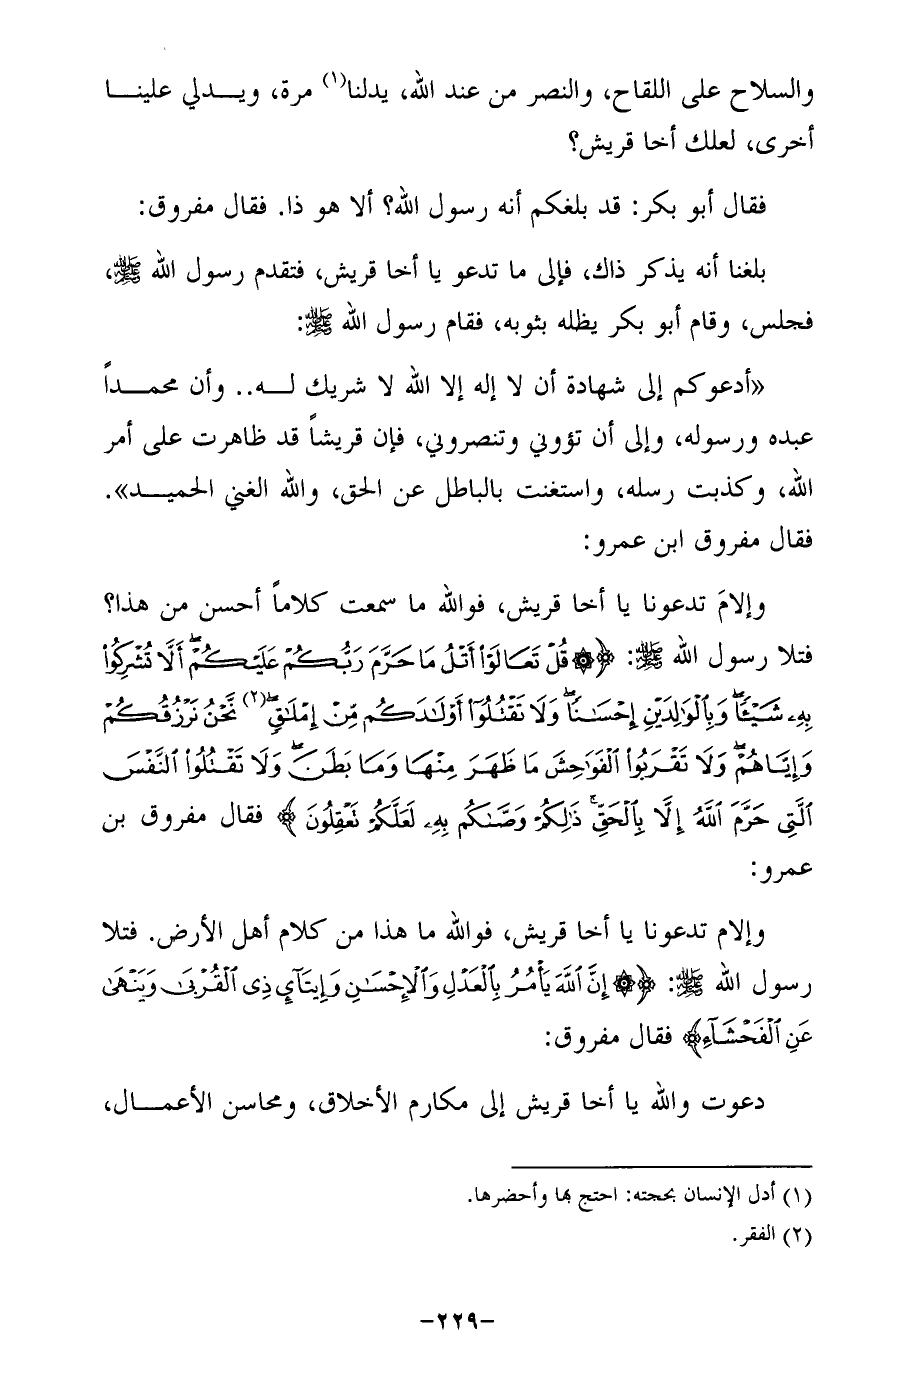 والسلاح على اللقاح، والنصر من عند الله، يدلنا(١) مرة، ويـــدلي علينـــا
أخرى، لعلك أخا قريش؟
فقال أبو بكر: قد بلغكم أنه رسول الله؟ ألا هو ذا. فقال مفروق:
بلغنا أنه يذكر ذاك، فإلى ما تدعو يا أخا قريش، فتقدم رسول الله ﷺ،
فجلس، وقام أبو بكر يظله بثوبه، فقام رسول الله ﷺ:
«أدعوكم إلى شهادة أن لا إله إلا الله لا شريك لـــه.. وأن محمـــداً
عبده ورسوله، وإلى أن تؤوني وتنصروني، فإن قريشاً قد ظاهرت على أمر
الله، وكذبت رسله، واستغنت بالباطل عن الحق، والله الغني الحميـــد».
فقال مفروق ابن عمرو:
وإلامَ تدعونا يا أخا قريش، فوالله ما سمعت كلاماً أحسن من هذا؟
فتلا رسول الله ﷺ: ﴿۞ قُلْ تَعَالَوْا۟ أَتْلُ مَا حَرَّمَ رَبُّكُمْ عَلَيْكُمْ ۖ أَلَّا تُشْرِكُوا۟
بِهِۦ شَيْـًٔا ۖ وَبِٱلْوَٰلِدَيْنِ إِحْسَـٰنًا ۖ وَلَا تَقْتُلُوٓا۟ أَوْلَـٰدَكُم مِّنْ إِمْلَـٰقٍ ۖ(٢) نَّحْنُ نَرْزُقُكُمْ
وَإِيَّاهُمْ ۖ وَلَا تَقْرَبُوا۟ ٱلْفَوَٰحِشَ مَا ظَهَرَ مِنْهَا وَمَا بَطَنَ ۖ وَلَا تَقْتُلُوا۟ ٱلنَّفْسَ
ٱلَّتِى حَرَّمَ ٱللَّهُ إِلَّا بِٱلْحَقِّ ۚ ذَٰلِكُمْ وَصَّىٰكُم بِهِۦ لَعَلَّكُمْ تَعْقِلُونَ ﴾ فقال مفروق بن
عمرو:
وإلام تدعونا يا أخا قريش، فوالله ما هذا من كلام أهل الأرض. فتلا
رسول الله ﷺ: ﴿۞ إِنَّ ٱللَّهَ يَأْمُرُ بِٱلْعَدْلِ وَٱلْإِحْسَـٰنِ وَإِيتَآئِ ذِى ٱلْقُرْبَىٰ وَيَنْهَىٰ
عَنِ ٱلْفَحْشَآءِ﴾ فقال مفروق:
دعوت والله يا أخا قريش إلى مكارم الأخلاق، ومحاسن الأعمـــال،
(١) أدل الإنسان بحجته: احتج بها وأحضرها.
(٢) الفقر.
-٢٢٩-